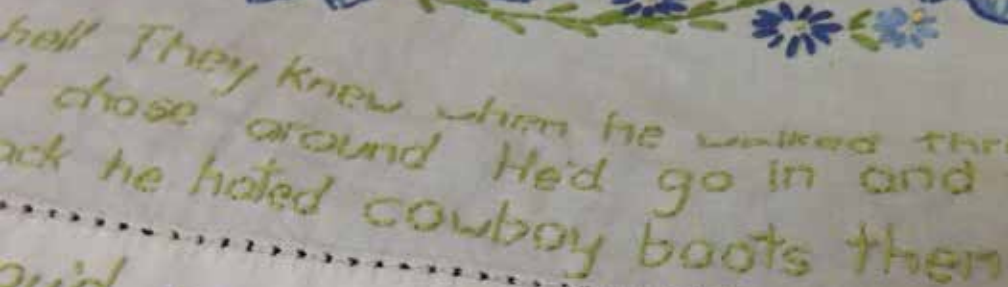 hell They knew when he walked thr
d chose around He'd go in and
ack he hated cowboy boots then
ould